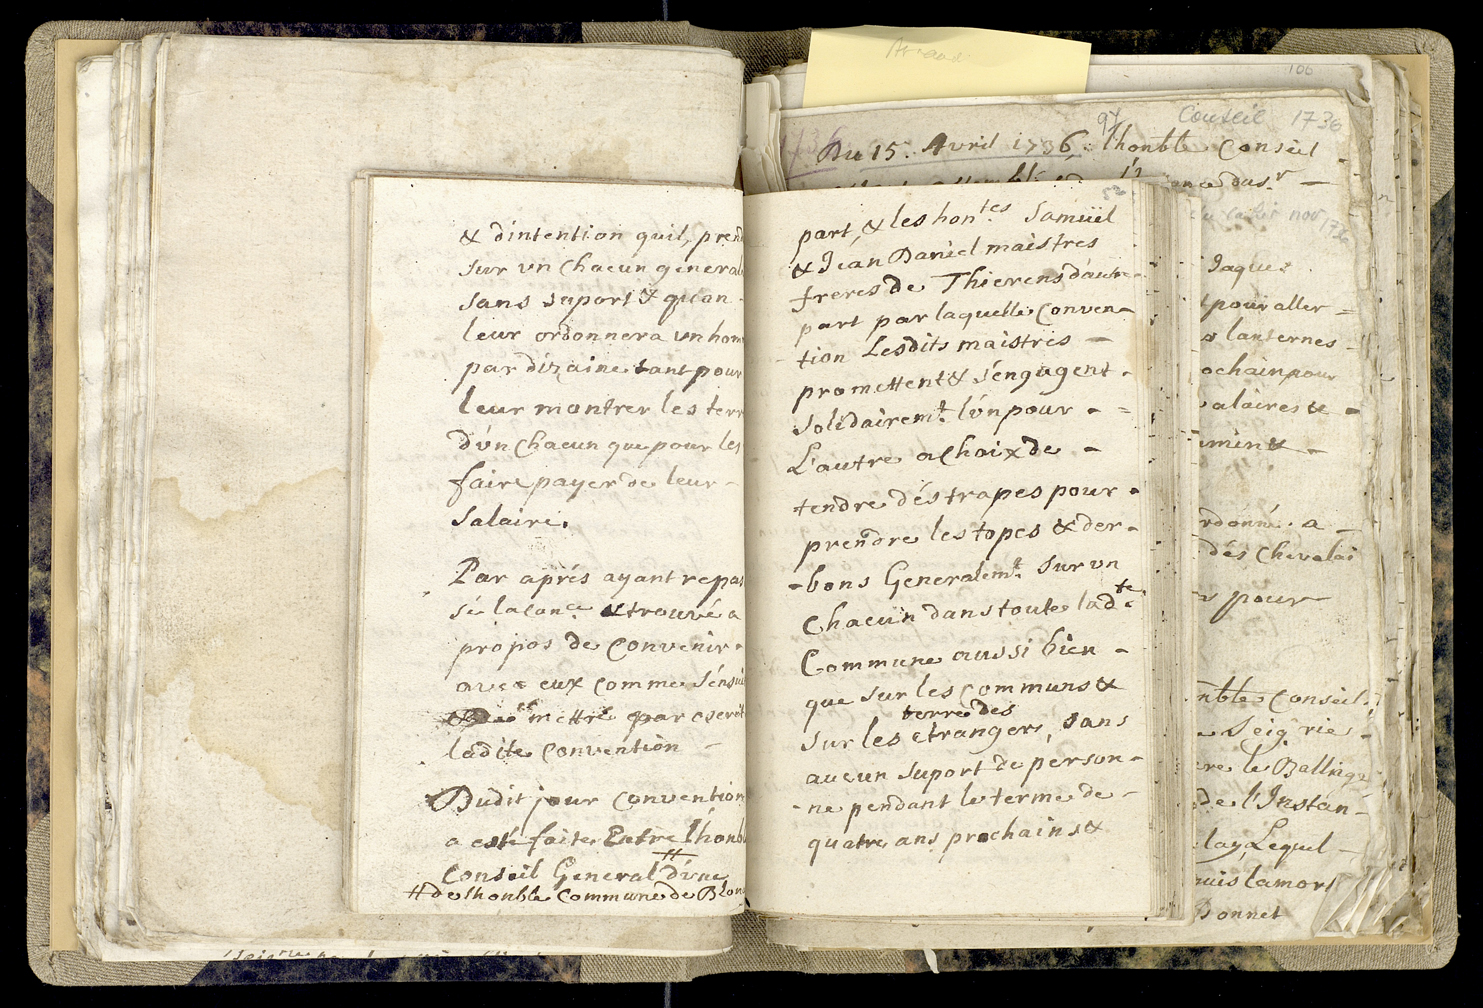 & d'intention quil prend
sur un Chacun general
sans suport & quon
leur ordonnera un hom
par dizaine tant pour
leur montrer les terr
d'un Chacun que pour les
faire payer de leur -
salaire.
Par aprés ayant repas
sé lacon.ce & trouvé a
propos de Convenir -
avec eux Comme sénsui
& mettre par escrit
ladite Convention -
Dudit jour Convention
a esté faite Entre l'honb
Conseil General # d'une
# de lhonble Commune de Blon
part, & les hon.tes Samuël
& Jean Daniel maistres
freres de Thierens dautre -
part par laquelle Conven-
tion Lesdits maistres -
promettent & s'engagent -
solidairem.t l'un pour - =
L'autre a Choix de -
tendre dés trapes pour -
prendre les topes & der-
-bons Generalem.t sur un
Chacun dans toute lad.te
Commune aussi bien -
que sur les Communs &
terre des
sur les etrangers, sans
aucun suport de person-
-ne pendant le terme de -
quatre ans prochains &
Arnaud
106
97 Conseil 1736
Du 15. Avril 1736, lhonble Conseil
Jaques
pour aller =
lanternes -
ochain pour
alaires & -
ordonné. a -
dés Chevalai
pour
nble Conseil.
Seig.rie -
le Balling
de l'Instan-
lay, Lequel -
puis lamort
Bonnet